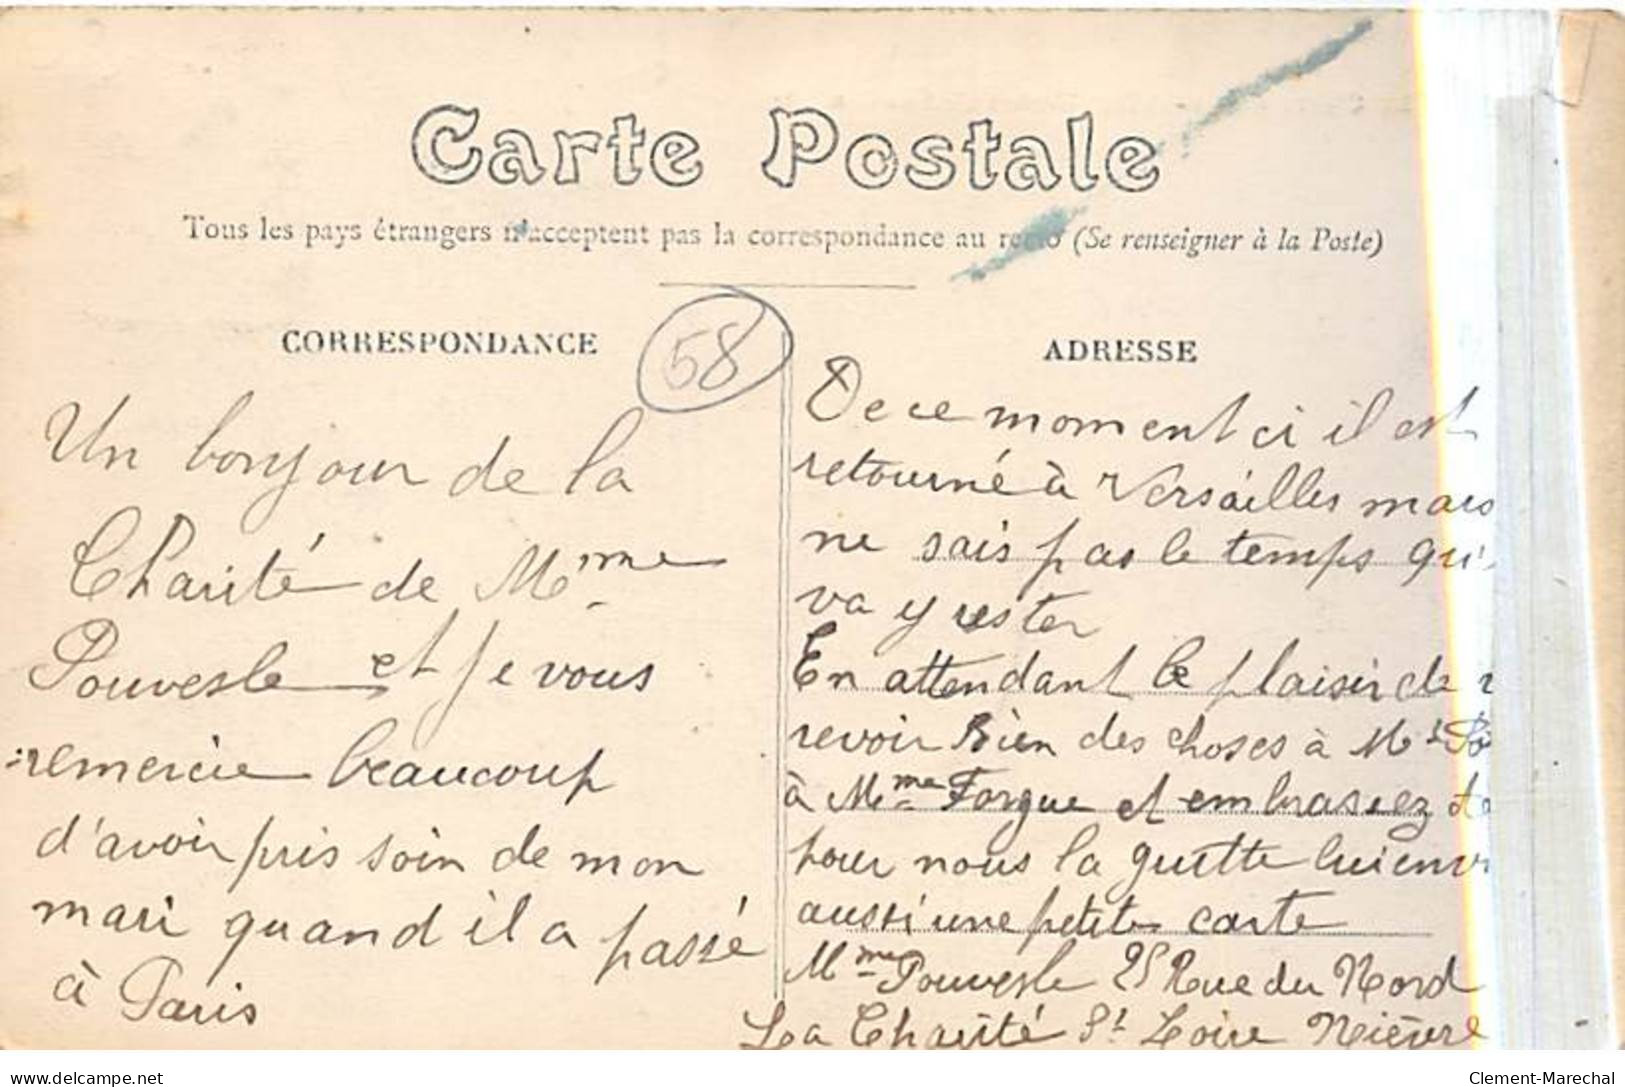 Carte Postale
Tous les pays étrangers n'acceptent pas la correspondance au recto (Se renseigner à la Poste)
CORRESPONDANCE
58
Un bonjour de la
Charité de Mme
Pouvesle et je vous
remercie beaucoup
d'avoir pris soin de mon
mari quand il a passé
à Paris
ADRESSE
De ce moment ci il est
retourné à Versailles mais
ne sais pas le temps qu'i
va y rester
En attendant le plaisir de
revoir Bien des choses à
à Mme Forgue et embrassez
pour nous la guette lui
aussi une petite carte
Mme Pouvesle 25 Rue du Nord
La Charité St Loire Nièvre
delcampe.net
Clement-Marechal